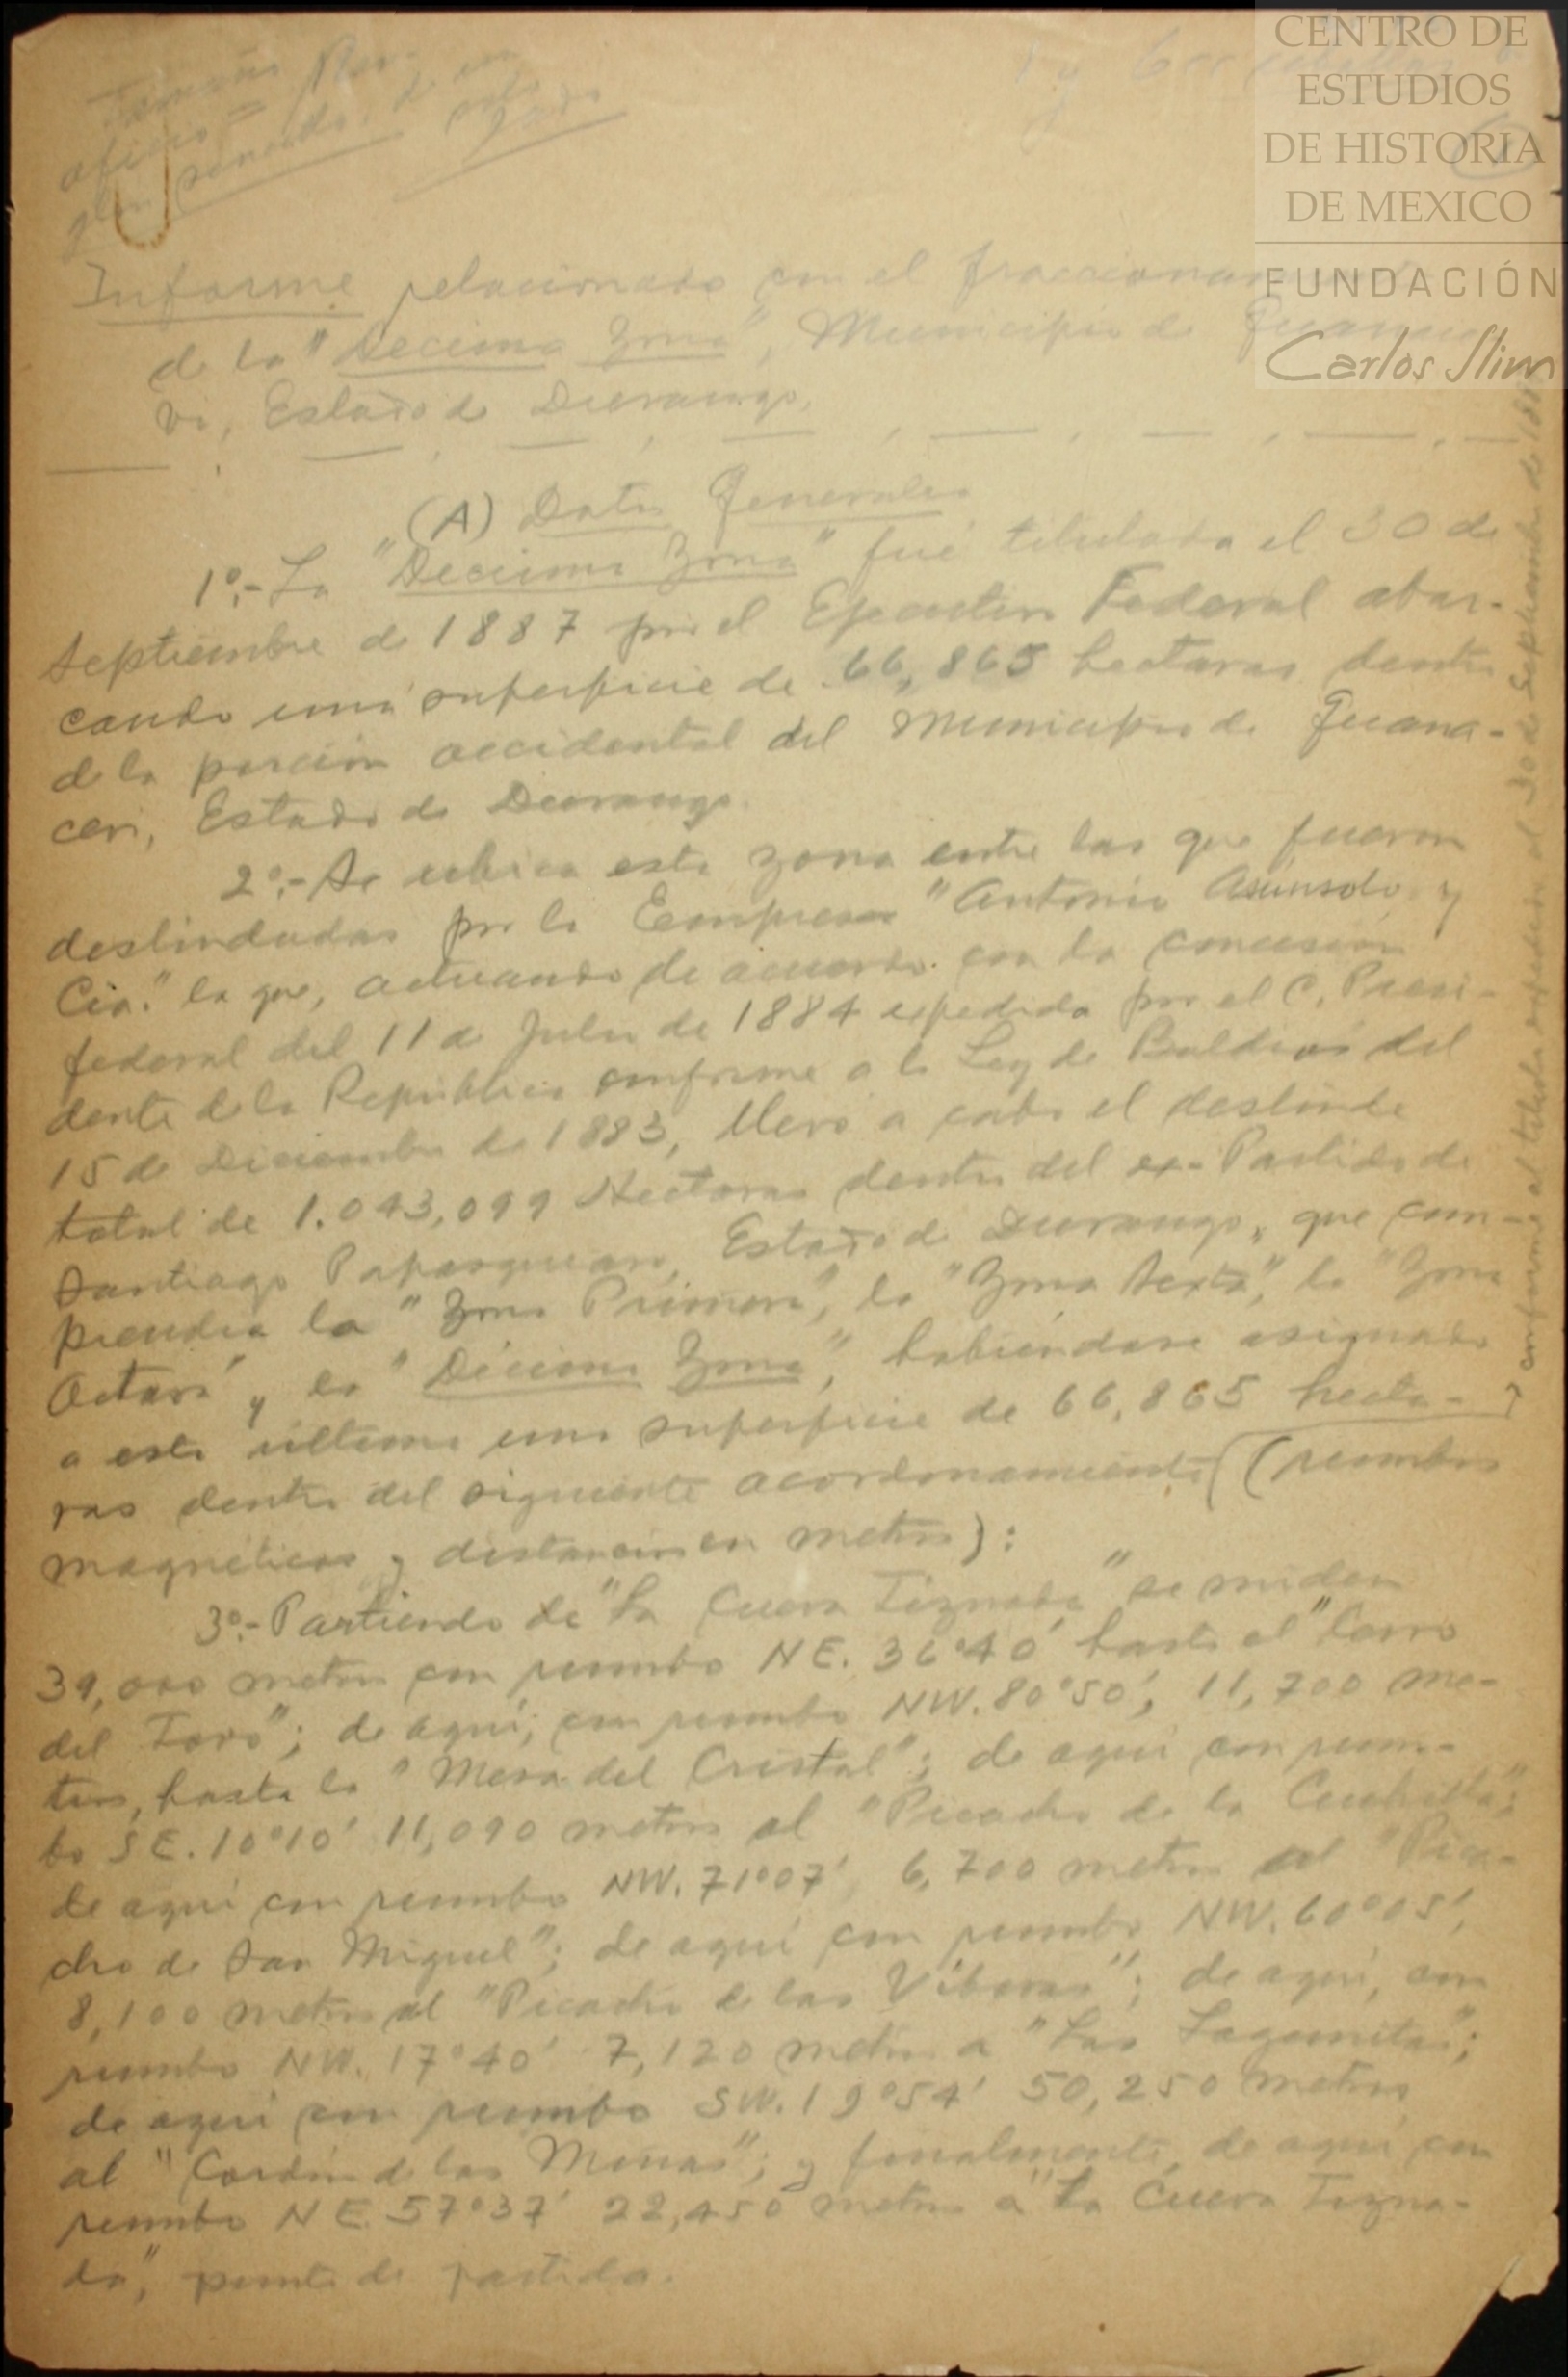 CENTRO DE
ESTUDIOS
DE HISTORIA
DE MEXICO
FUNDACIÓN
Carlos Slim
Tamaño
oficio =
Informe relacionado con el
de la "Decima Zona", Municipio de
vi, Estado de Durango.
(A) Datos Generales
1º.- La "Decima Zona" fué titulada el 30 de
Septiembre de 1887 por el Ejecutivo Federal abar-
cando una superficie de 66,865 hectaras dentro
de la porción occidental del Municipio de Guana-
cevi, Estado de Durango.
2º.- Se ubica esta zona entre las que fueron
deslindadas por la Compresa "Antonio Asúnsolo y
Cia." la que, actuando de acuerdo con la concesión
federal del 11 de Julio de 1884 expedida por el C. Presi-
dente de la República conforme a la Ley de Baldios del
15 de Diciembre de 1883, llevó a cabo el deslinde
total de 1.043,099 Hectaras dentro del ex-Partido de
Santiago Papasquiaro, Estado de Durango, que com-
prendía la "Zona Primera", la "Zona Sexta", la "Zona
Octava" y la "Décima Zona", habiéndose asignado
a esta última una superficie de 66,865 hecta-
ras dentro del siguiente acordonamiento (rumbos
magnéticos y distancias en metros):
3º.- Partiendo de "La Cueva Tiznada" se miden
39,000 metros con rumbo NE. 36°40' hasta el "Cerro
del Toro"; de aquí, con rumbo NW. 80°50', 11,700 me-
tros, hasta la "Mesa del Cristal"; de aquí con rum-
bo SE. 10°10' 11,090 metros al "Picacho de la Cuchilla";
de aquí con rumbo NW. 71°07' 6,700 metros al "Pica-
cho de San Miguel"; de aquí con rumbo NW. 60°05',
8,100 metros al "Picacho de las Víboras"; de aquí, con
rumbo NW. 17°40' 7,120 metros a "Las Lagunitas";
de aquí con rumbo SW. 19°54' 50,250 metros
al "Cordón de las Monas"; y finalmente, de aquí con
rumbo NE. 57°37' 22,450 metros a "La Cueva Tizna-
da", punto de partida.
conforme al titulo expedido el 30 de Septiembre de